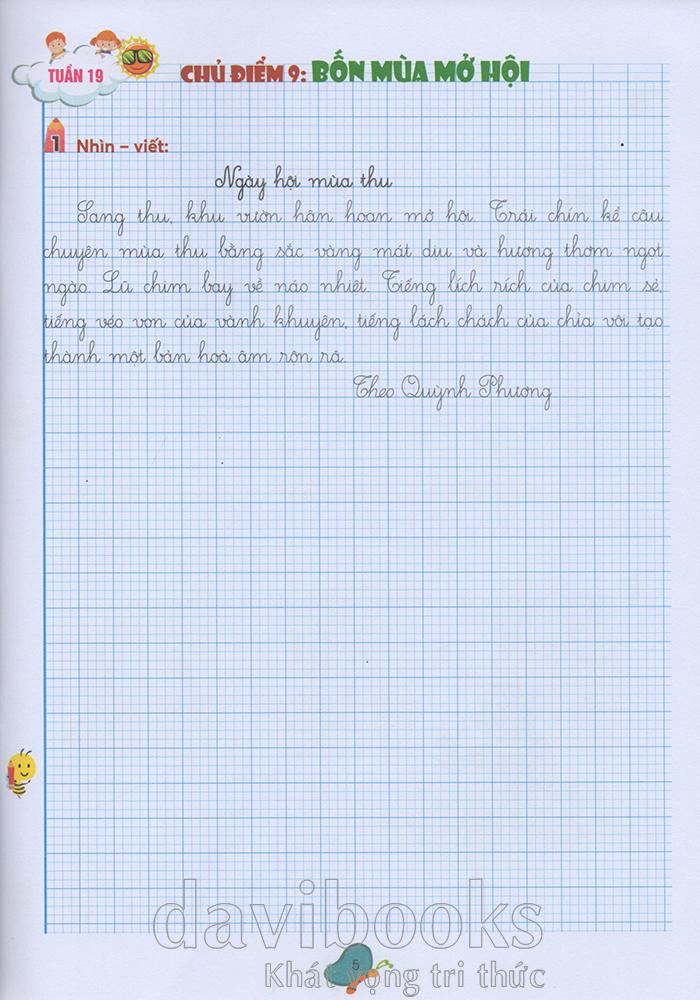 TUẦN 19
CHỦ ĐIỂM 9: BỐN MÙA MỞ HỘI
1 Nhìn – viết:
Ngày hội mùa thu
Sang thu, khu vườn hân hoan mở hội. Trái chín kể câu
chuyện mùa thu bằng sắc vàng mát dịu và hương thơm ngọt
ngào. Lũ chim bay về náo nhiệt. Tiếng lích rích của chim sẻ,
tiếng véo von của vành khuyên, tiếng lách chách của chìa vôi tạo
thành một bản hoà âm rộn rã.
Theo Quỳnh Phương
davibooks
5
Khát vọng tri thức